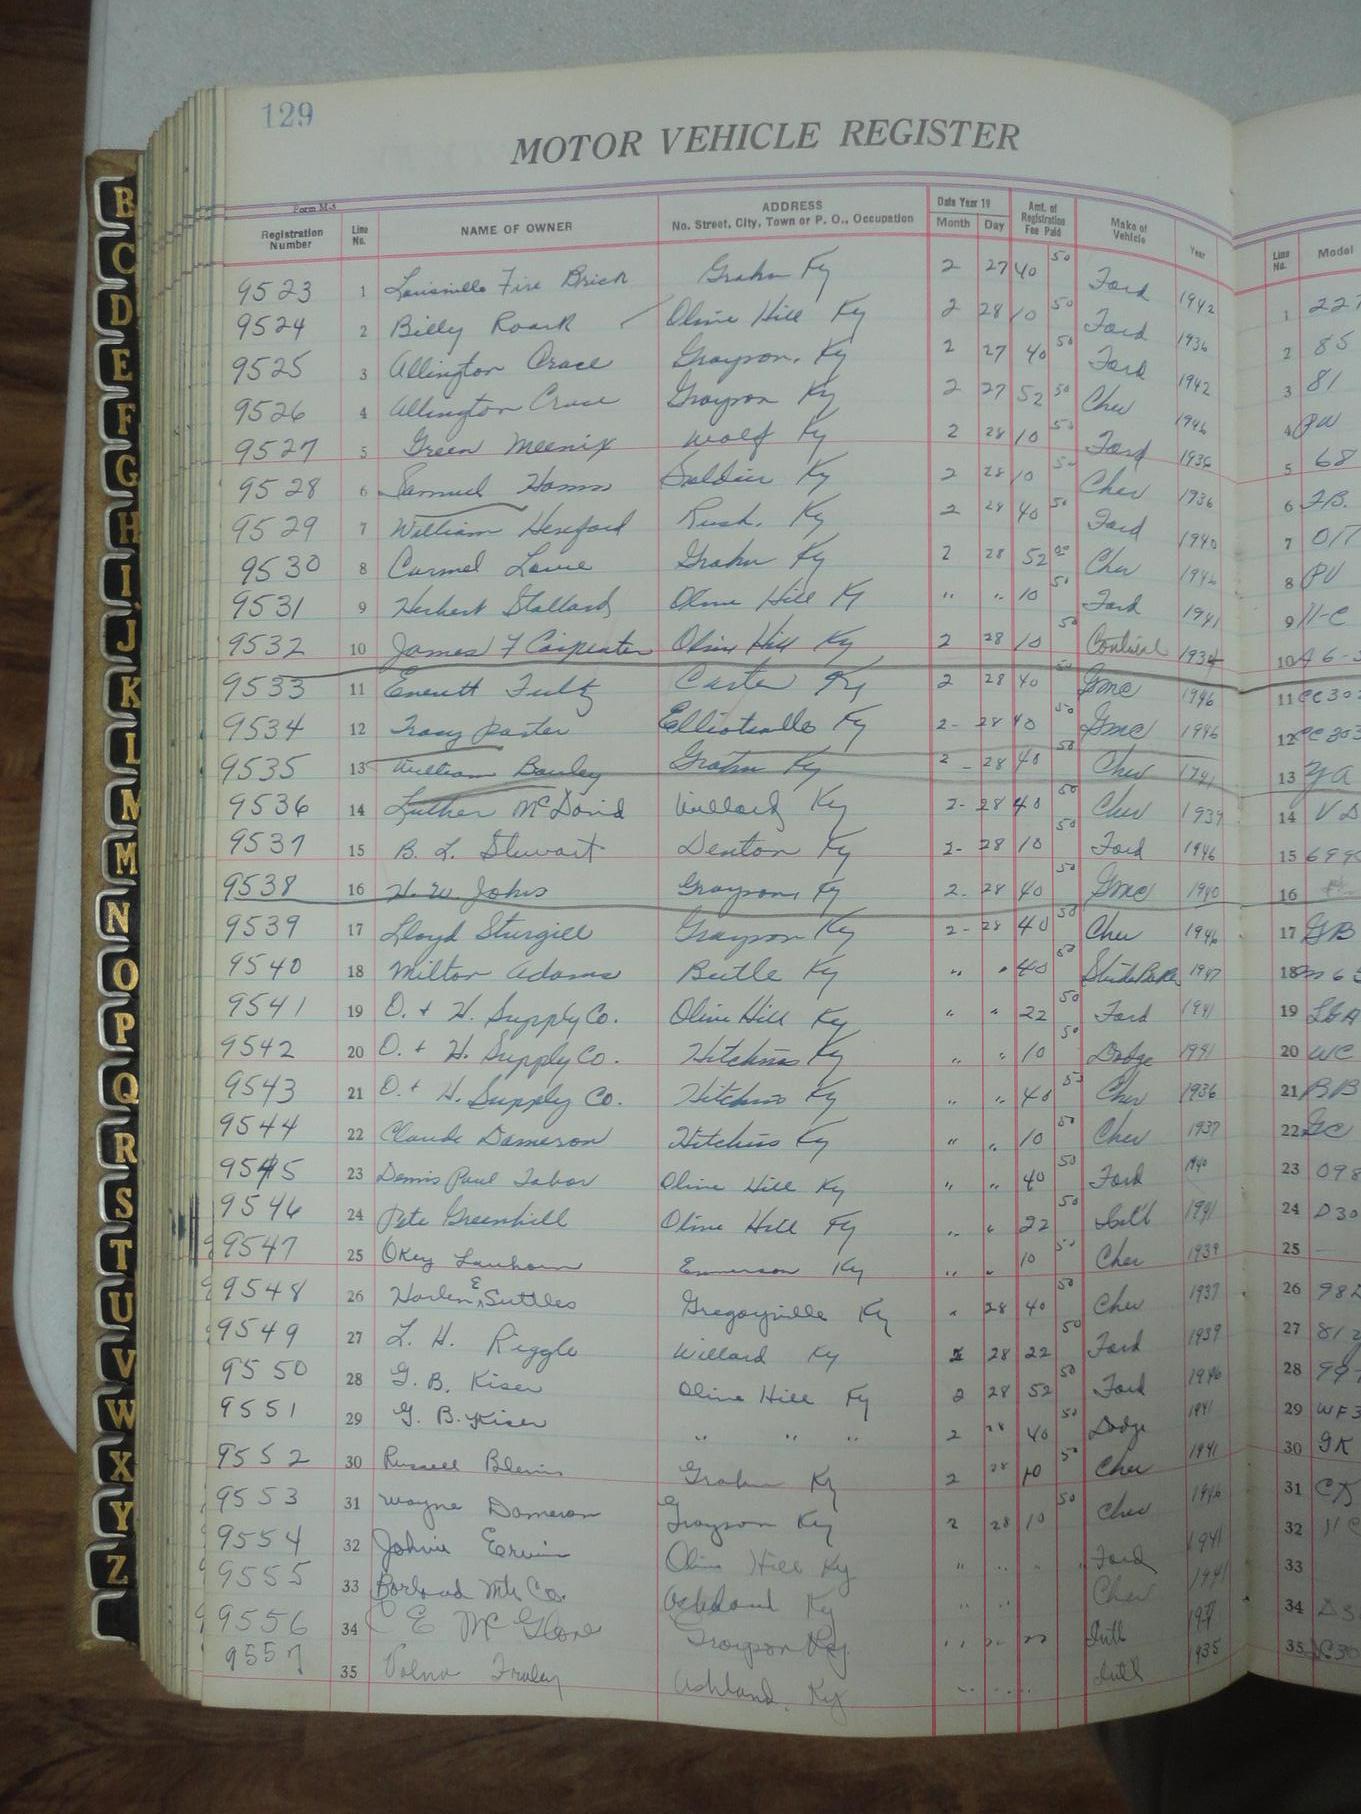 129
MOTOR VEHICLE REGISTER
Form M-5
Registration Number Line No. NAME OF OWNER ADDRESS No. Street, City, Town or P. O., Occupation Date Year 19 Month Day Amt. of Registration Fee Paid Make of Vehicle Year Line No. Model
9523 1 Louisville Fire Brick Grahn Ky 2 27 40 50 Ford 1942 1
9524 2 Billy Roark Olive Hill Ky 2 28 10 50 Ford 1936 2 85
9525 3 Allington Crace Grayson, Ky 2 27 40 50 Ford 1942 3 81
9526 4 Allington Crace Grayson Ky 2 27 52 50 Chev 1946 4
9527 5 Green Meenix Wolf Ky 2 28 10 50 Ford 1936 5 68
9528 6 Samuel Hamm Soldier Ky 2 28 10 50 Chev 1936 6
9529 7 William Hereford Rush, Ky 2 28 40 50 Ford 1940 7
9530 8 Carmel Lowe Grahn Ky 2 28 52 Chev 1946 8
9531 9 Herbert Stallard Olive Hill Ky " " 10 50 Ford 1941 9 11-C
9532 10 James F Carpenter Olive Hill Ky 2 28 10 50 1934 10
9533 11 Everett Fultz Carter Ky 2 28 40 50 Gmc 1946 11
9534 12 Tracy Porter Elliottville Ky 2- 28 40 50 Gmc 1946 12
9535 13 William Bowley Grahn Ky 2 - 28 40 50 Chev 1941 13
9536 14 Luther McDavid Willard Ky 2- 28 40 50 Chev 1939 14
9537 15 B. L. Stewart Denton Ky 2- 28 10 50 Ford 1946 15
9538 16 H. W. Johns Grayson, Ky 2- 28 40 50 Gmc 1940 16
9539 17 Lloyd Sturgill Grayson Ky 2- 28 40 50 Chev 1946 17
9540 18 Milton Adams Ky " " 40 50 StudeBaker 1947 18
9541 19 O. + H. Supply Co. Olive Hill Ky " " 22 50 Ford 1941 19
9542 20 O. + H. Supply Co. Hitchins Ky " " 10 50 Dodge 1941 20 WC
9543 21 O. + H. Supply Co. Hitchins Ky " " 40 50 Chev 1936 21
9544 22 Claude Dameron Hitchins Ky " " 10 50 Chev 1937 22 GC
9545 23 Dennis Paul Tabor Olive Hill Ky " " 40 50 Ford 1940 23 098
9546 24 Pete Greenhill Olive Hill Ky " " 22 50 Intl 1941 24 D30
9547 25 Okey Lanhorn Emerson Ky " " 10 50 Chev 1939 25
9548 26 Harlen E Suttles Gregoryville Ky " 28 40 50 Chev 1937 26
9549 27 L. H. Riggle Willard Ky 2 28 22 50 Ford 1939 27
9550 28 G. B. Kiser Olive Hill Ky 2 28 52 50 Ford 1946 28
9551 29 G. B. Kiser " " " 2 28 40 50 Dodge 1941 29 WF3
9552 30 Russell Blevins Grahn Ky 2 28 10 50 Chev 1941 30
9553 31 Wayne Dameron Grayson Ky 2 28 10 50 Chev 1946 31
9554 32 Johnie Erwin Olive Hill Ky " " Ford 1941 32
9555 33 Ashland Ky " " Chev 1941 33
9556 34 C E McGlone Grayson Ky Intl 34
9557 35 Volna Fraley Ashland, Ky Intl 1935 35
B
C
D
E
F
G
H
I
J
K
L
M
M
N
O
P
Q
R
S
T
U
V
W
X
Y
Z